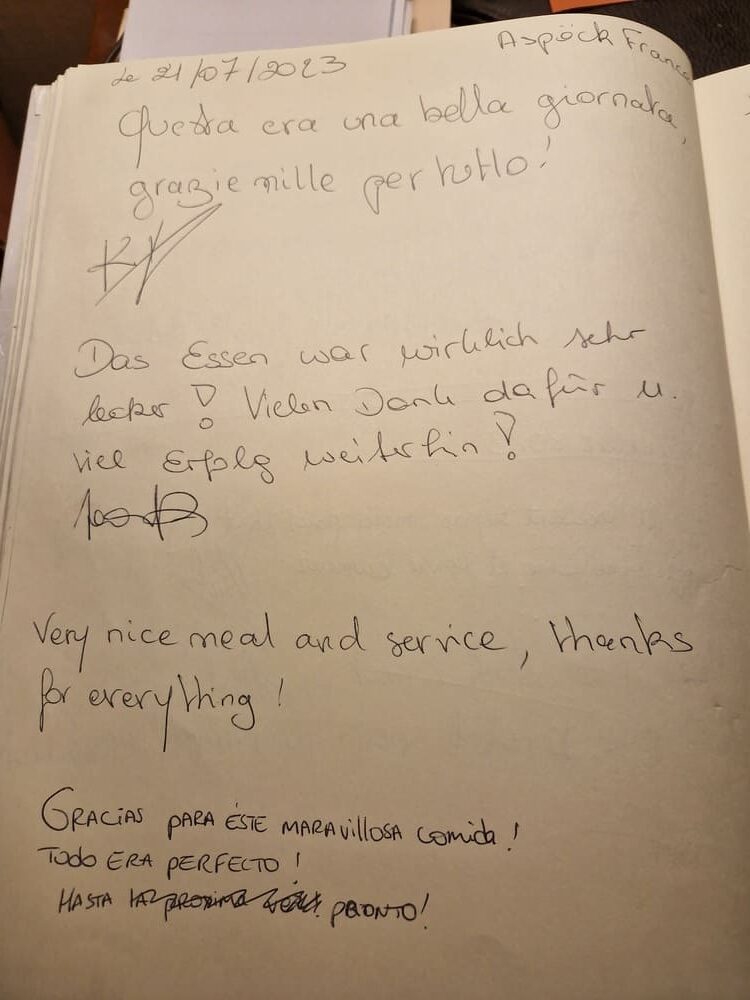 Le 21/07/2023
Aspöck France
Questa era una bella giornata,
grazie mille per tutto!
Das Essen war wirklich sehr
lecker! Vielen Dank dafür u.
viel Erfolg weiterhin!
Very nice meal and service, thanks
for everything!
GRACIAS PARA ÉSTE MARAVILLOSA comida!
TODO ERA PERFECTO!
HASTA PRONTO!